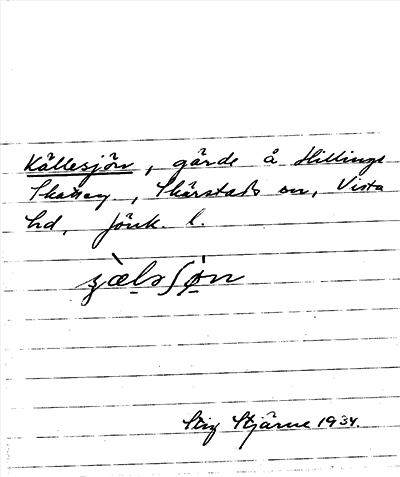 Källesjön, gärde å Hillinge
Skattey, Skärstads sn, Vista
hd, Jönk. l.
Stig Stjärne 1934.